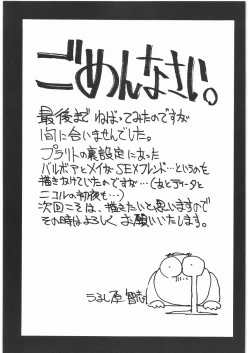 ごめんなさい。
最後まで ねばってみたのですが
間に合いませんでした。
プラリトの裏設定にあった
バルボアとメイがSEXフレンド…というのも
描きかけていたのですが…(あとティータと
ニコルの初夜も…)
次回こそは、描きたいと思いますので
その時はよろしく お願いいたします。
うるし原 智志